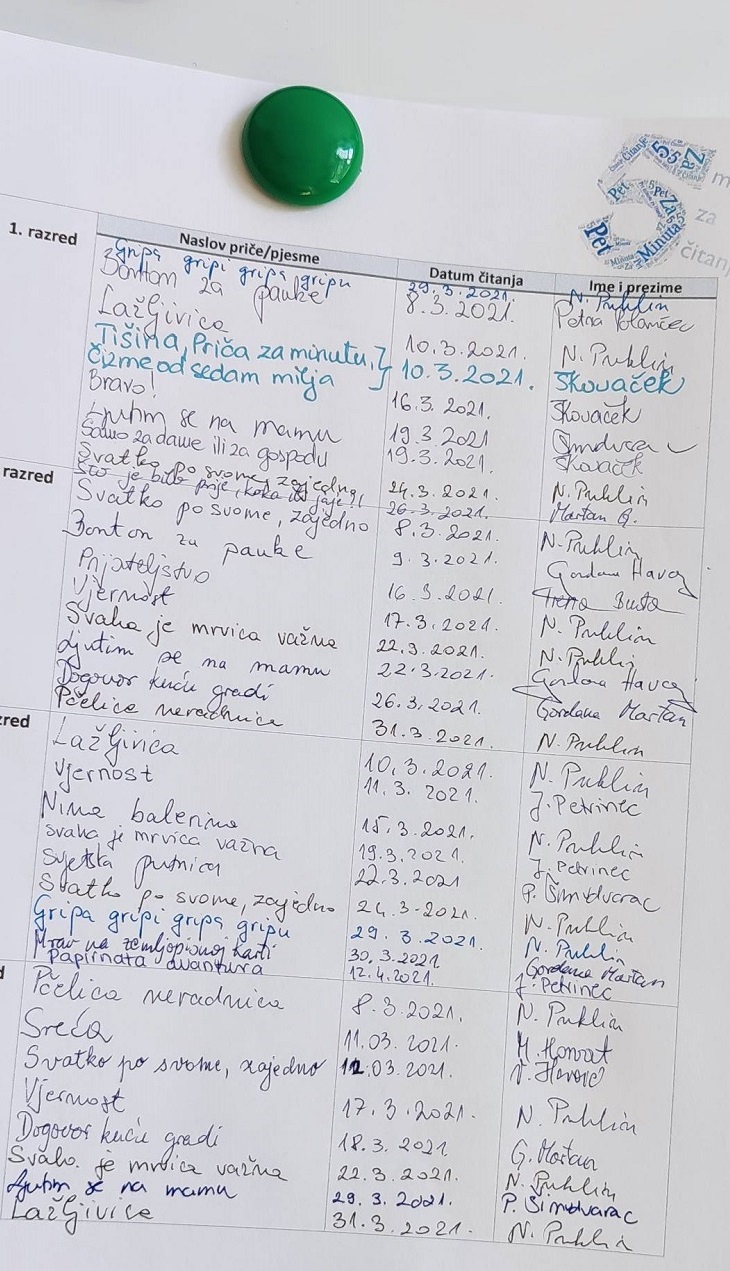 Pet Za 5 Minuta
za
čitanj
1. razred Naslov priče/pjesme Datum čitanja Ime i prezime
Gripa gripi gripa gripu 29.3.2021. N. Puhlin
Bonton za pauke 8.3.2021. Petra
Lažljivica 10.3.2021. N. Puhlin
Tišina, Priča za minutu,
Čizme od sedam milja } 10.3.2021. Skovaček
Bravo! 16.3.2021. Skovaček
Ljutim se na mamu 19.3.2021
Samo za dame ili za gospodu 19.3.2021. Skovaček
Svatko po svome, zajedno 24.3.2021. N. Puhlin
Što je bilo prije, koka ili jaje?! 26.3.2021. Martan G.
razred Svatko po svome, zajedno 8.3.2021. N. Puhlin
Bonton za pauke 9.3.2021. Gordana
Prijateljstvo 16.3.2021.
Vjernost 17.3.2021. N. Puhlin
Svaka je mrvica važna 22.3.2021. N. Puhlin
Ljutim se na mamu 22.3.2021. Gordana
Dogovor kuću gradi 26.3.2021. Gordana Martan
Pčelica neradnica 31.3.2021. N. Puhlin
zred Lažljivica 10.3.2021. N. Puhlin
Vjernost 11.3.2021. J. Petrinec
Nina balerina 15.3.2021. N. Puhlin
svaka je mrvica važna 19.3.2021. J. Petrinec
Svjetska putnica 22.3.2021 P. Šimdvarac
Svatko po svome, zajedno 24.3.2021. N. Puhlin
Gripa gripi gripa gripu 29.3.2021. N. Puhlin
Mrav na zemljopisnoj karti 30.3.2021. Gordana Martan
Papirnata avantura 12.4.2021. J. Petrinec
d Pčelica neradnica 8.3.2021. N. Puhlin
Sreća 11.03.2021. M. Horvat
Svatko po svome, zajedno 12.03.2021.
Vjernost 17.3.2021. N. Puhlin
Dogovor kuću gradi 18.3.2021. G. Martan
Svaka je mrvica važna 22.3.2021. N. Puhlin
Ljutim se na mamu 29.3.2021. P. Šimdvarac
Lažljivica 31.3.2021. N. Puhlin